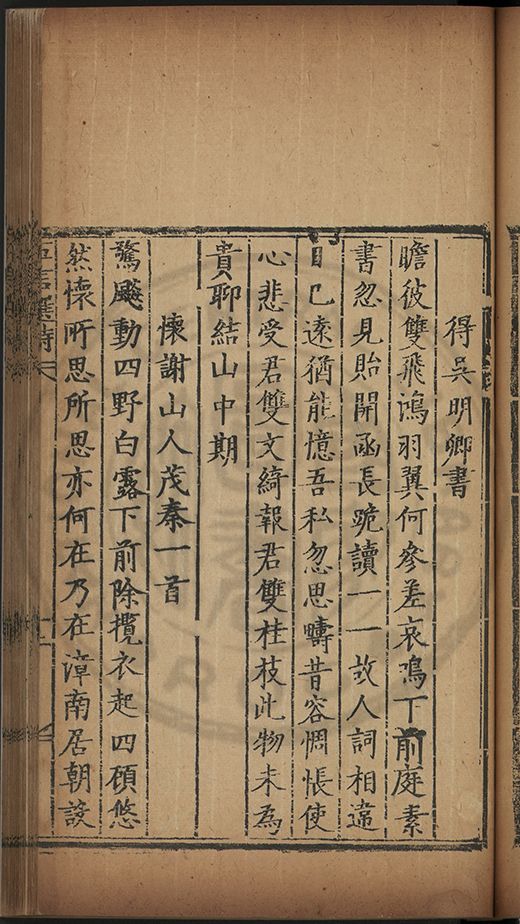 得吳明卿書
瞻彼雙飛鴻羽翼何參差哀鳴下前庭素
書忽見貽開函長跪讀一一故人詞相違
日已遠猶能憶吾私忽思疇昔容惆悵使
心悲受君雙文綺報君雙桂枝此物未為
貴聊結山中期
懷謝山人茂秦一首
驚飇動四野白露下前除攬衣起四顧悠
然懷所思所思亦何在乃在漳南居朝誦
五言選詩